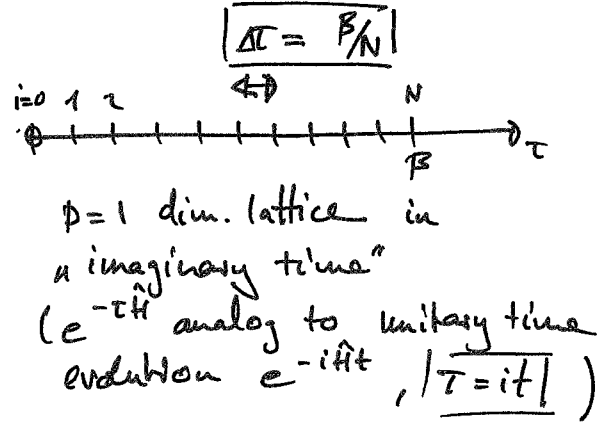 Δτ = β/N
i=0 1 2 N
τ
β
D=1 dim. lattice in
„imaginary time"
(e^{-τĤ} analog to unitary time
evolution e^{-iĤt}, τ=it)